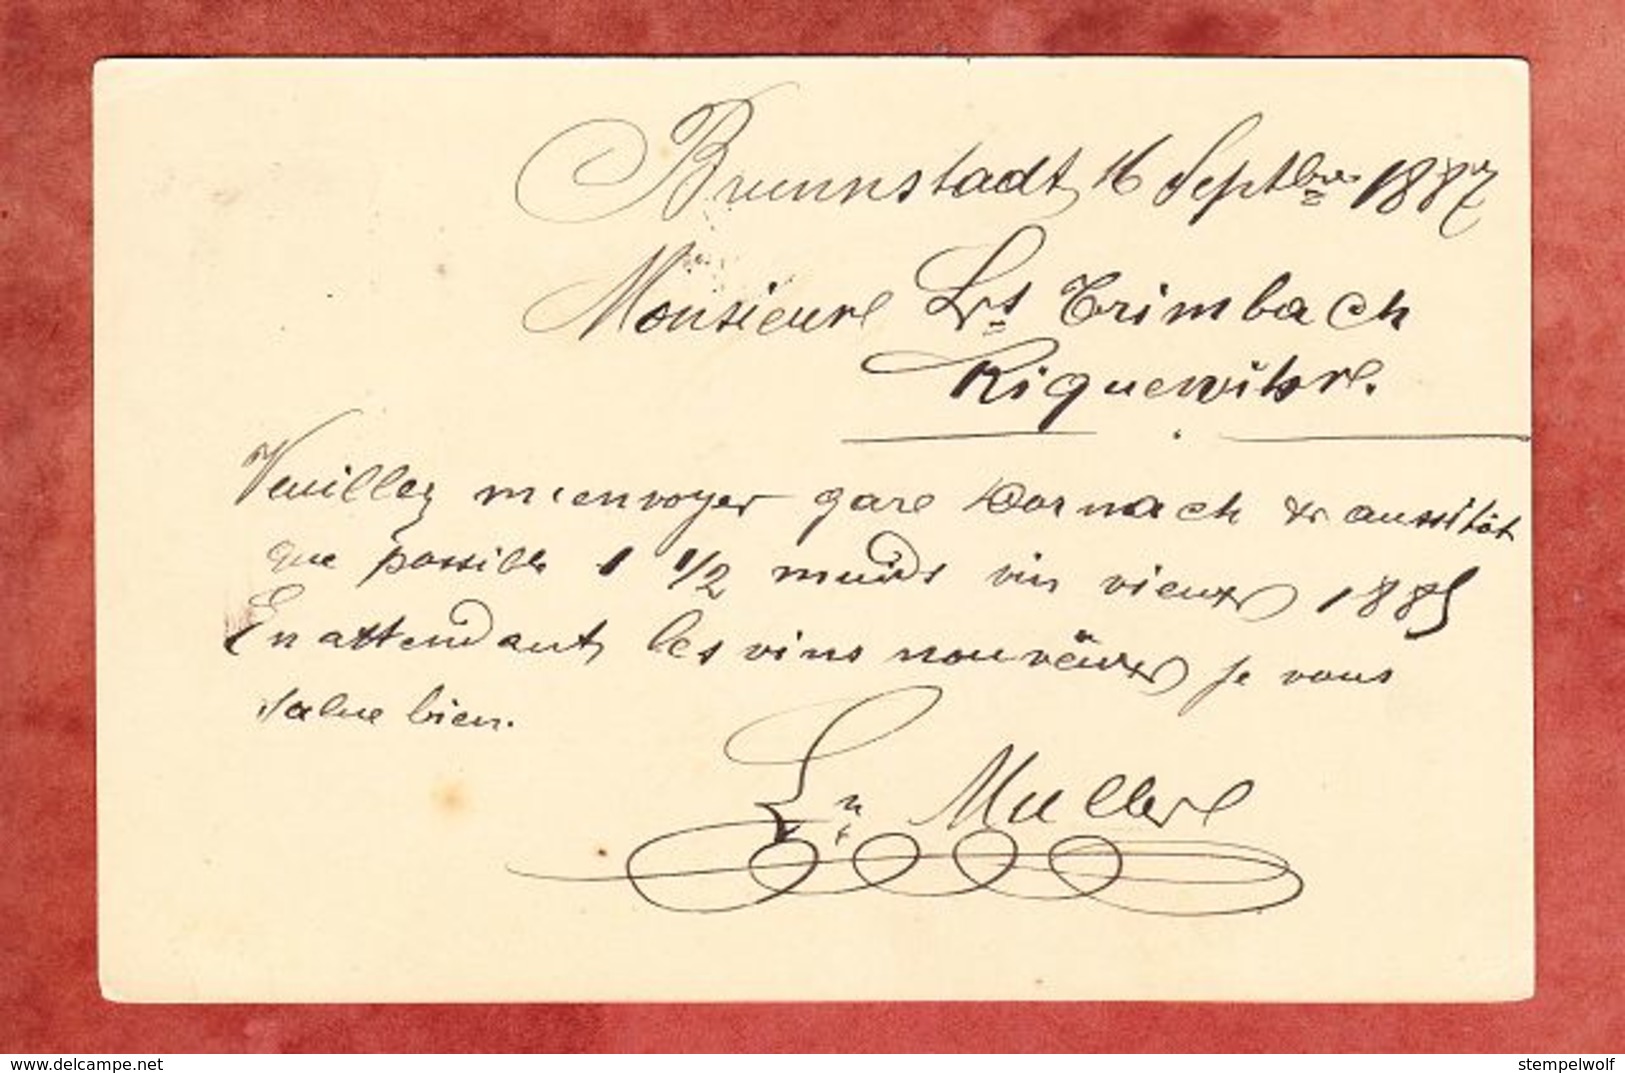 Brunnstadt 16 Septbre 1887
Monsieur Ls Trimbach
Riquewihr.
Veuillez m'envoyer gare Dornach & aussitôt
que possible 1 1/2 muids vin vieux 1885
En attendant les vins nouveaux je vous
salue bien.
En Muller
www.delcampe.net
stempelwolf